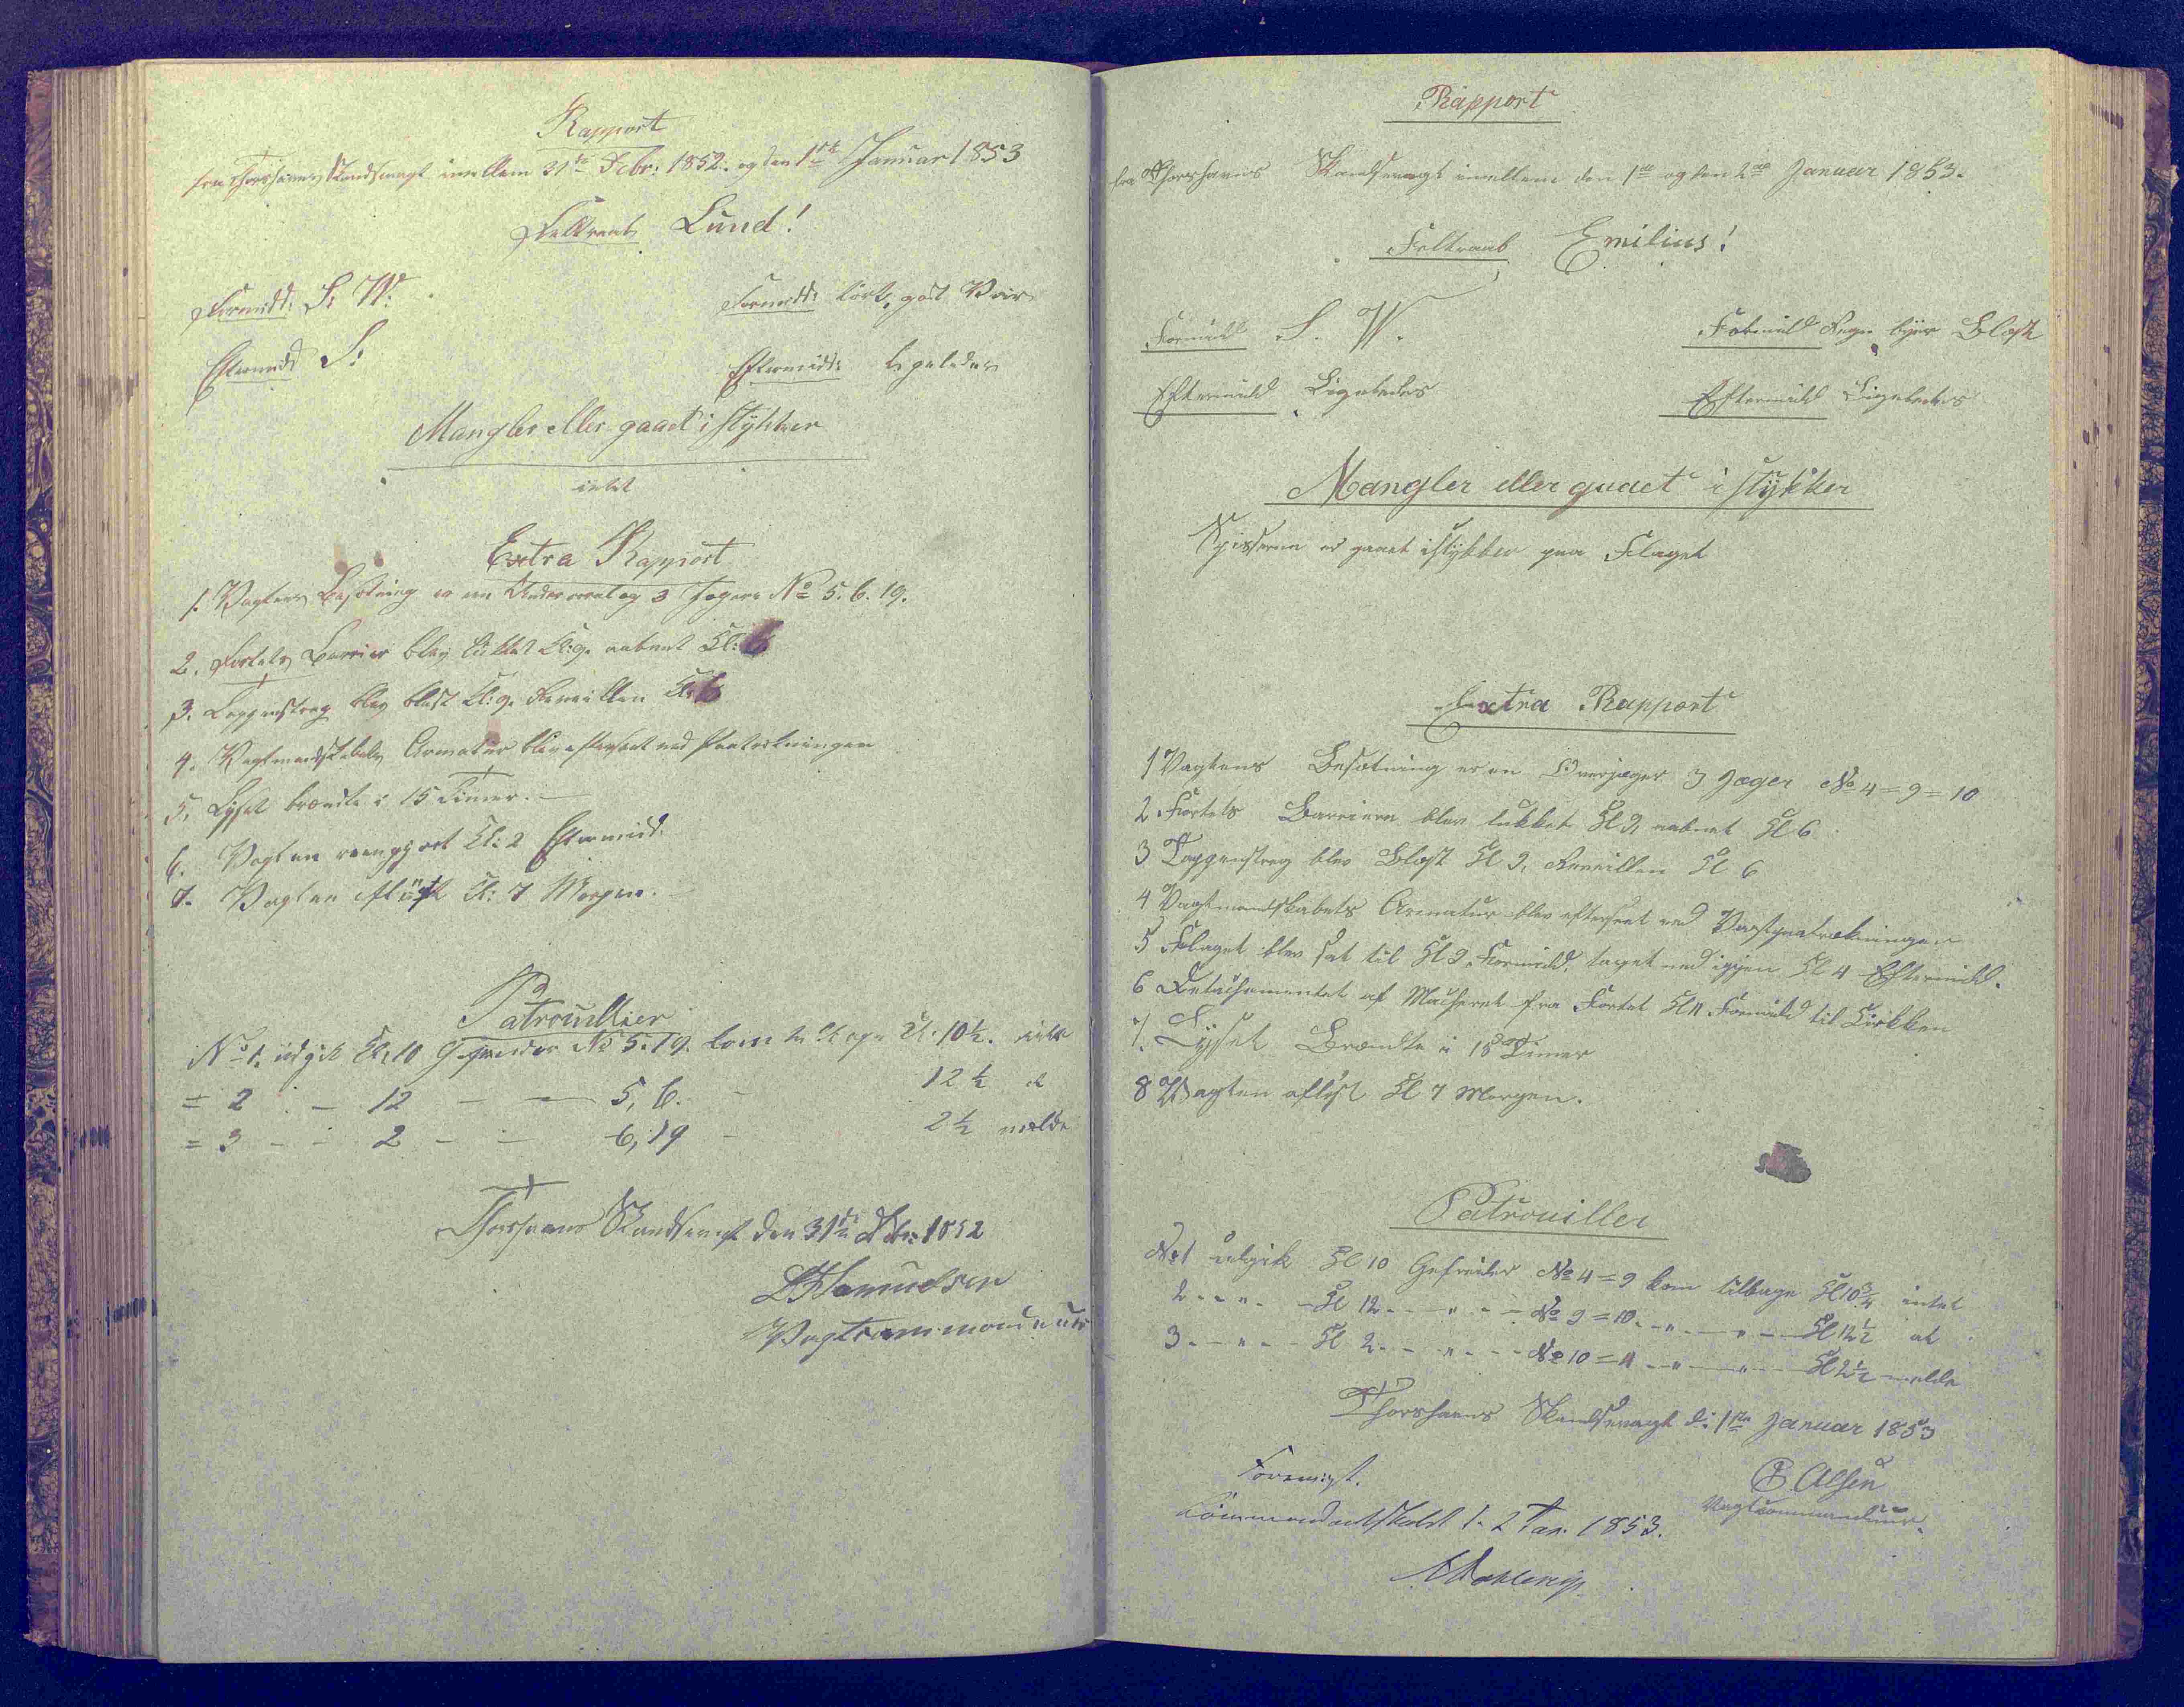 Rapport
fra Thorshavns Skandsevagt imellem 31te Dcbr: 1852. og den 1ste Januar 1853
Feltraab Lund!
Formidd: S: W:
Formidd: tørt, godt Veir
Eftermidd S:
Eftermidd: ligeledes
Mangler eller gaaet i stykker
intet
Extra Rapport
1. Vagtens Besætning er en Undercorral og 3 Jægere No 5. 6. 19.
2. Fortets Barrier blev lukket Kl: 9. aabnet Kl: 6
3. Tappenstreg blev blæst Kl: 9. Reveillen Kl: 6
4. Vagtmandskabets Armatur blev efterseet ved Paatrækningen
5. Lyset brændte i 15 Timer. —
6. Vagten reengjort Kl: 2 Eftermidd:
7. Vagten afløst Kl: 7 Morgen. —
Patrouillier
No 1. udgik Kl: 10 Gefreider No 5. 19. kom tilbage Kl. 10½. intet
= 2 - 12 - - 5, 6. - 12½ at
= 3 - - 2 - - 6, 19 - 2½ melde
Thorshavns Skandsevagt den 31te Dcbr: 1852
Samuelsen
Vagtcommandeur
Rapport
fra Thorshavns Skandsevagt imellem den 1ste og den 2den Januar 1853.
Feltraab Emilius!
Formidd S. W.
Formidd Regn byer Blæst
Eftermidd Ligeledes
Eftermidd Ligeledes
Mangler eller gaaet i stykker
Spidserne er gaaet istykker paa Flaget
Extra Rapport
1 Vagtens Besætning er en Overjæger 3 Jæger No 4 = 9 = 10
2 Fortets Barriere blev lukket Kl 9, aabnet Kl 6
3 Tappenstreg blev Blæst Kl 9, Reveillen Kl 6
4 Vagtmandskabets Armatur blev efterseet ved Vagtpaatrækningen
5 Flaget blev sat til Kl 9 Formidd, taget ned igjen Kl 4 Eftermidd.
6 Detachementet af Macheret fra Fortet Kl 11 Formidd til Kirkken
7. Lyset Brændte i 15 Timer
8 Vagten afløst Kl 7 Morgen.
Patrouiller
No 1 udgik Kl 10 Gefreider No 4 = 9 kom tilbage Kl 10¾ intet
2 - - " - - Kl 12 - - " - - No 9 = 10 - " - " - Kl 12½ at
3 - - " - - Kl 2 - - " - - No 10 = 4 - " - " - Kl 2½ melde
Thorshavns Skandsevagt d: 1ste Januar 1853
Foreviist.
E. Olsen
Commandantskabet d. 2 Jan. 1853.
Vagtcommandeur.
Dahlerup